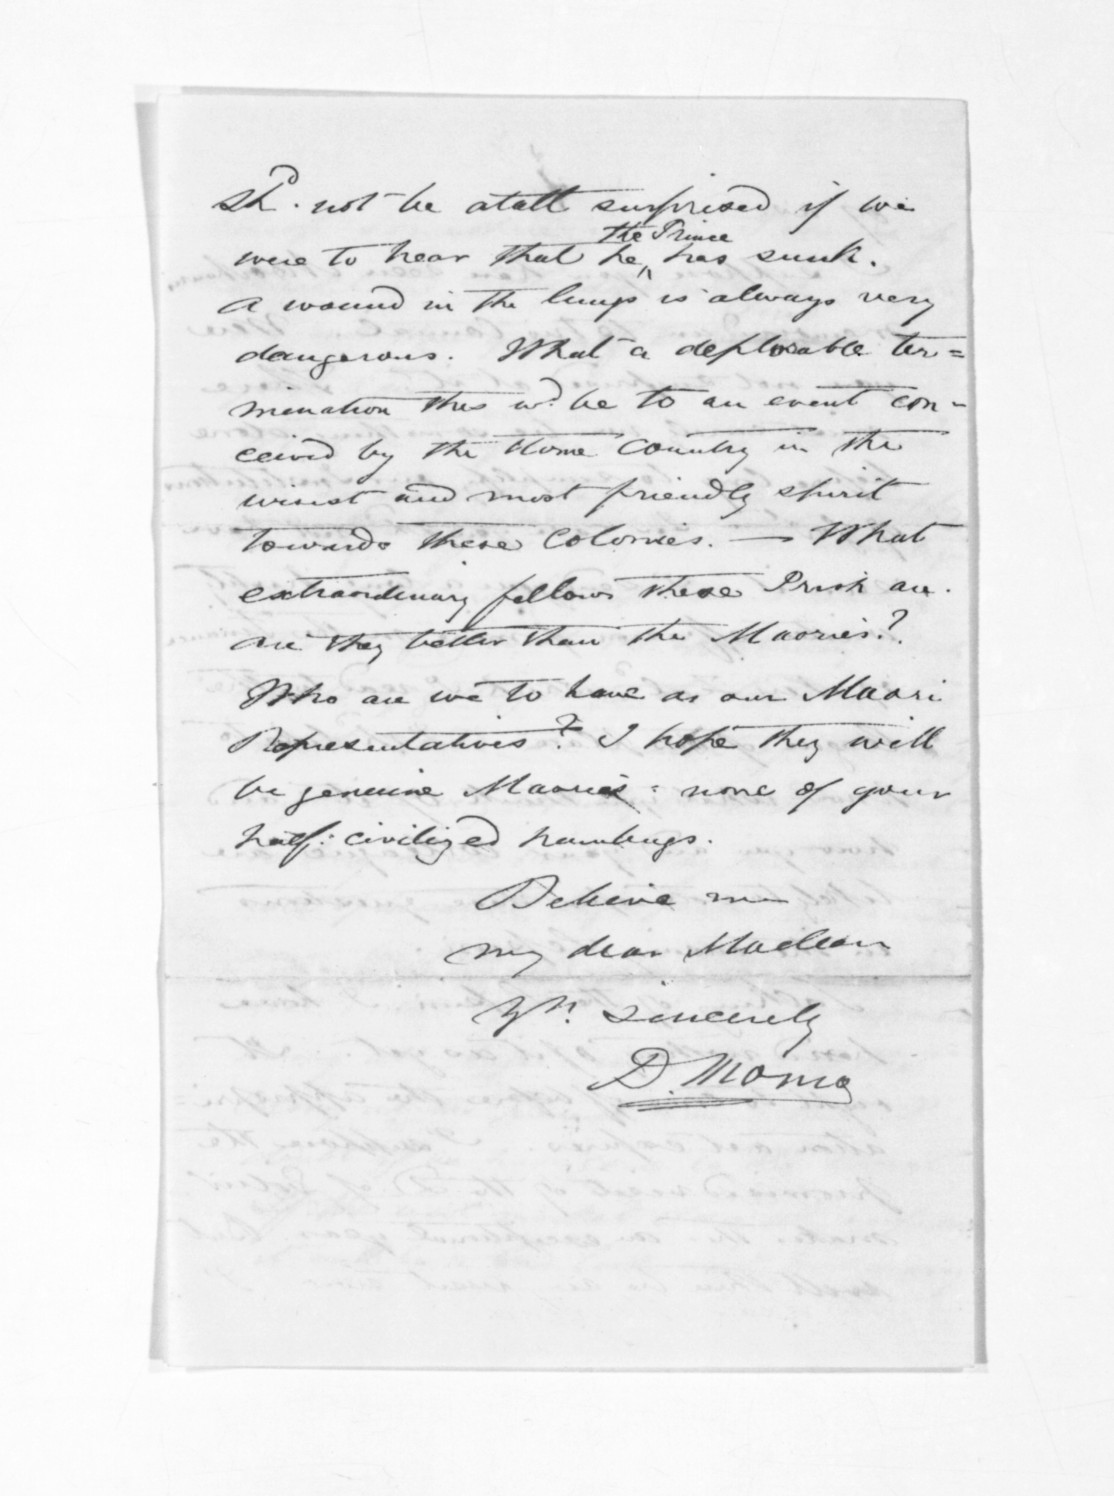 Shd. not be atall surprised if we
were to hear that he ^ the Prince has sunk.
A wound in the lungs is always very
dangerous. What a deplorable ter=
mination this wd. be to an event con-
ceived by the Home Country in the
wisest and most friendly spirit
towards these Colonies. — What
extraordinary fellows these Irish are.
Are they better than the Maories?
Who are we to have as our Maori
Representatives? I hope they will
be genuine Maories: none of your
half: civilized humbugs.
Believe me
my dear Maclean
Yrs. sincerely
D. Monro